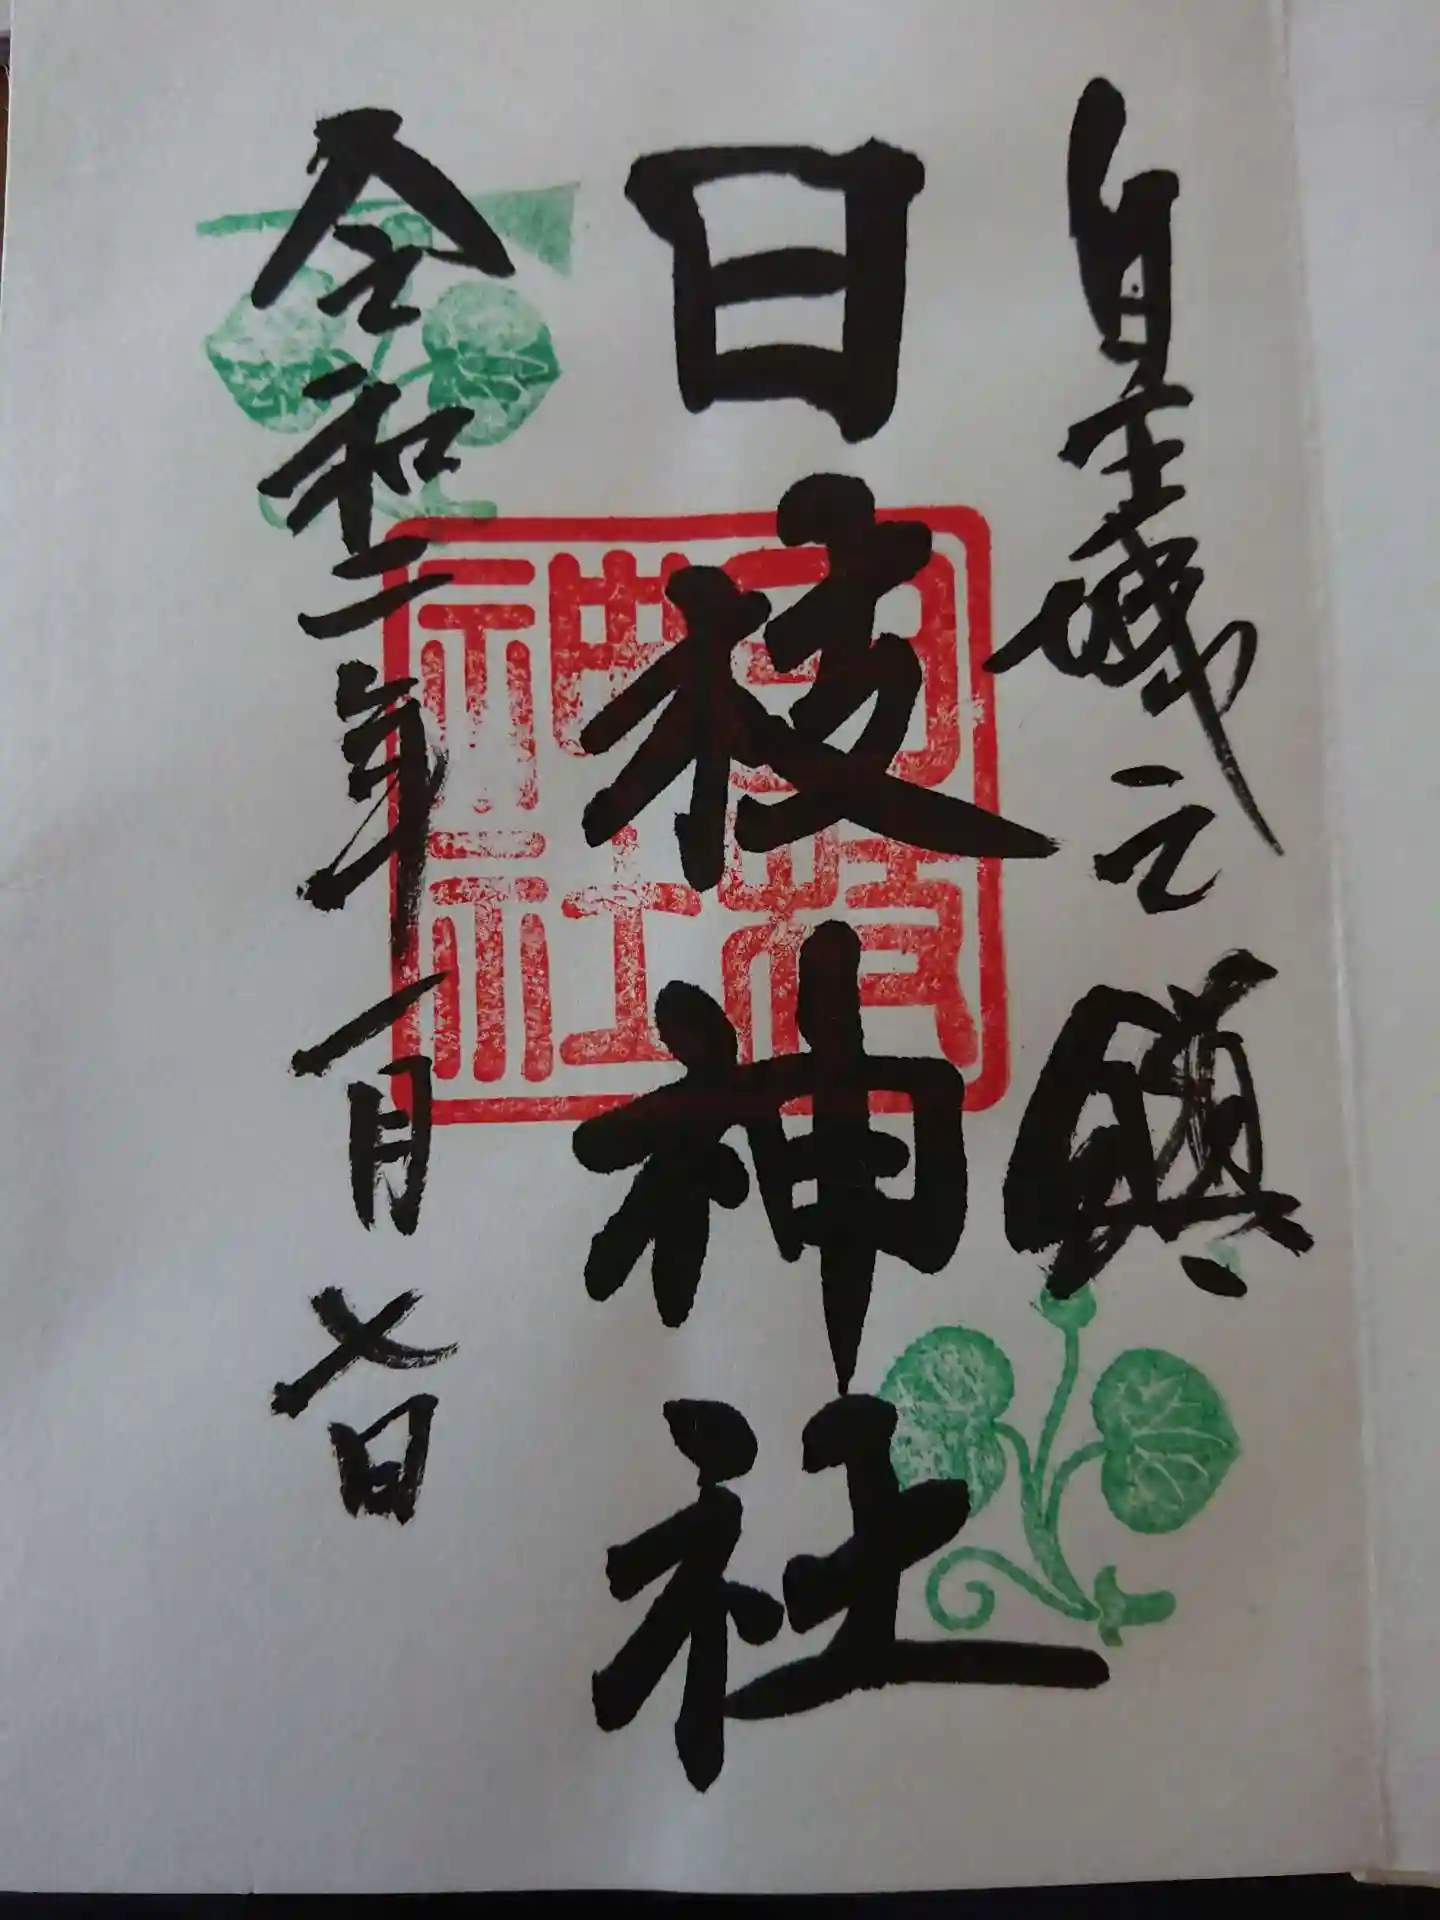 皇城之鎮
日枝神社
令和二年一月七日
日枝
神社